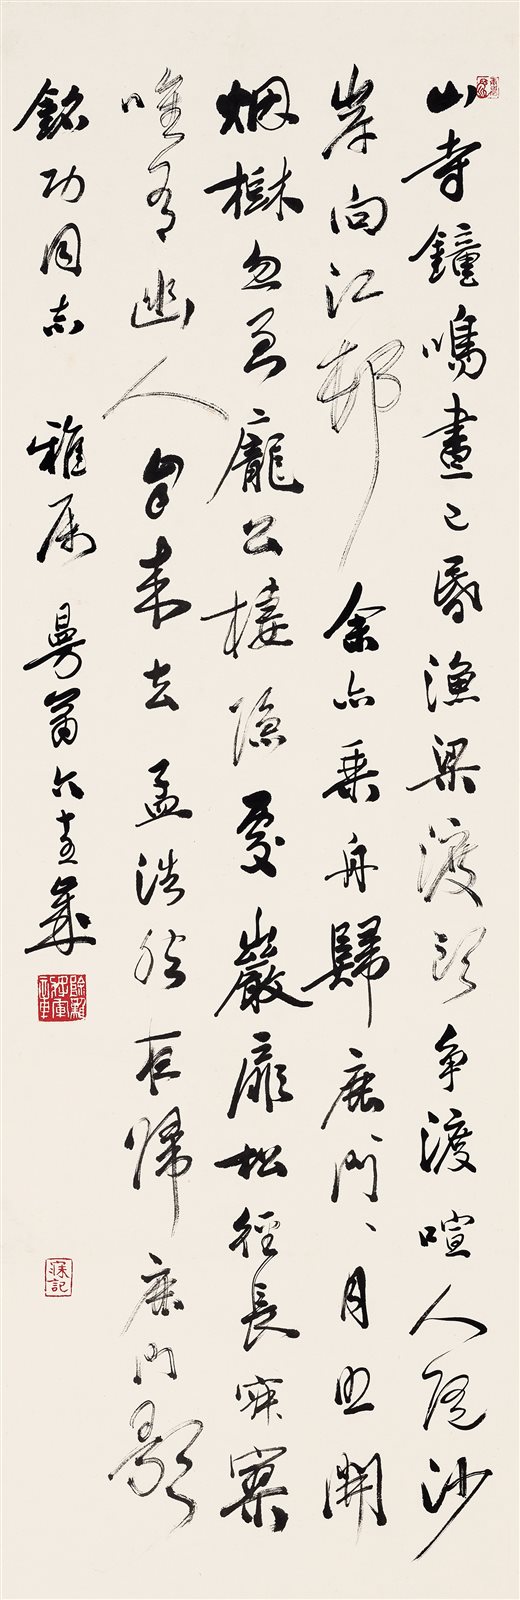 山寺鐘鳴晝已昏漁梁渡頭争渡喧人隨沙
岸向江邨余亦乘舟歸鹿門、月照開
烟樹忽至龐公棲隱處巖扉松徑長寂寞
唯有幽人自來去孟浩然夜歸鹿門歌
銘功同志 雅属 曼翁六十五歲